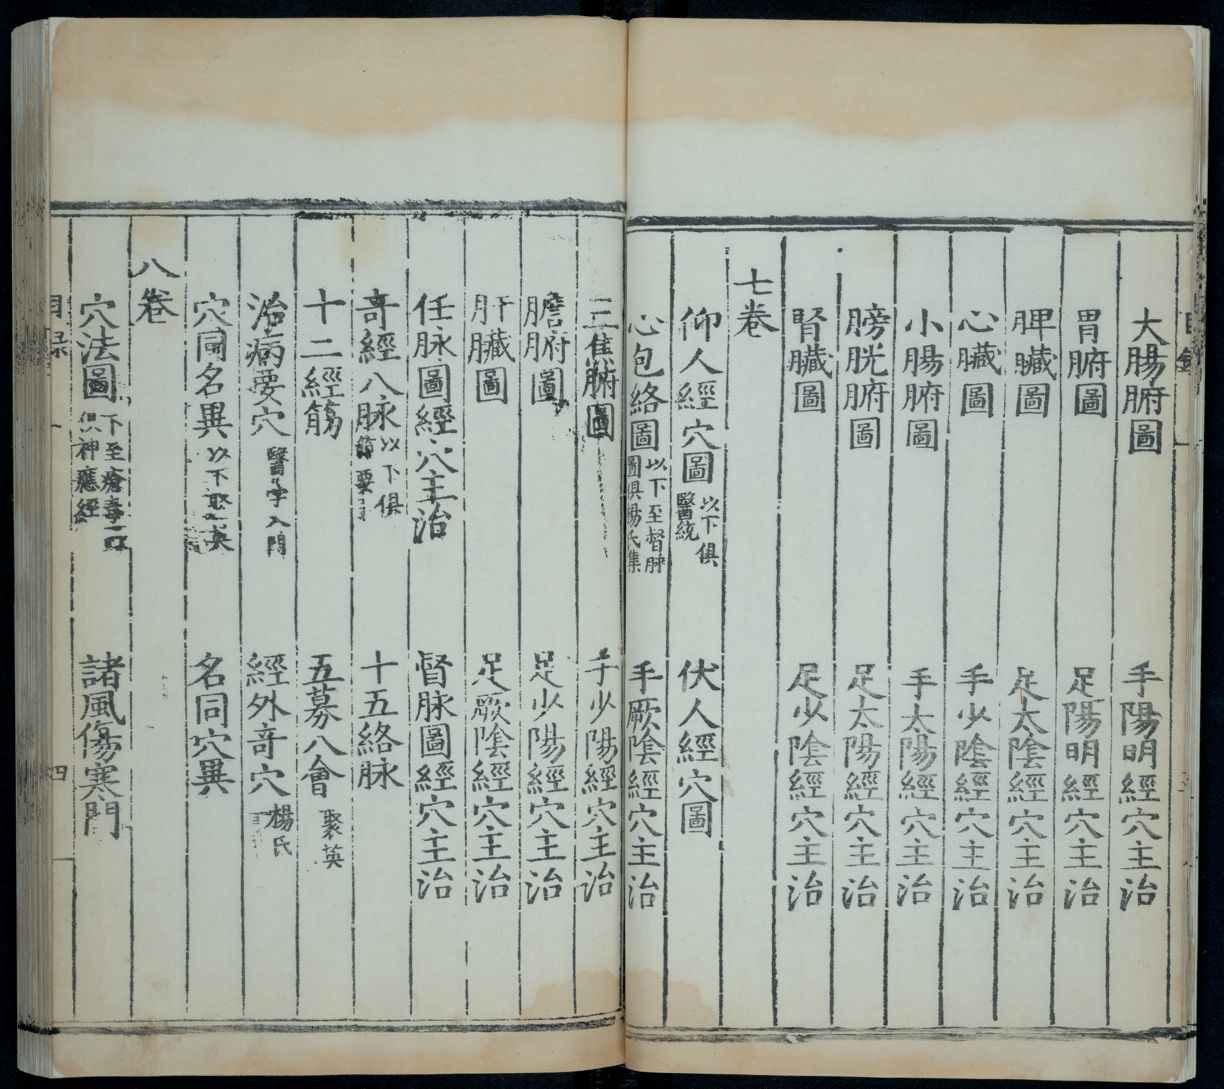 大腸腑圖　手陽明經穴主治
胃腑圖　足陽明經穴主治
脾臟圖　足太陰經穴主治
心臟圖　手少陰經穴主治
小腸腑圖　手太陽經穴主治
膀胱腑圖　足太陽經穴主治
腎臟圖　足少陰經穴主治
七卷
仰人經穴圖　以下俱醫統　伏人經穴圖
心包絡圖　以下至督脉圖俱楊氏集　手厥陰經穴主治
三焦腑圖　手少陽經穴主治
膽腑圖　足少陽經穴主治
肝臟圖　足厥陰經穴主治
任脉圖經穴主治　督脉圖經穴主治
奇經八脉　以下俱節要　十五絡脉
十二經筋　五募八會　聚英
治病要穴　醫學入門　經外奇穴　楊氏
穴同名異　以下聚英　名同穴異
八卷
穴法圖　下至瘡毒門俱神應經　諸風傷寒門
目録　四